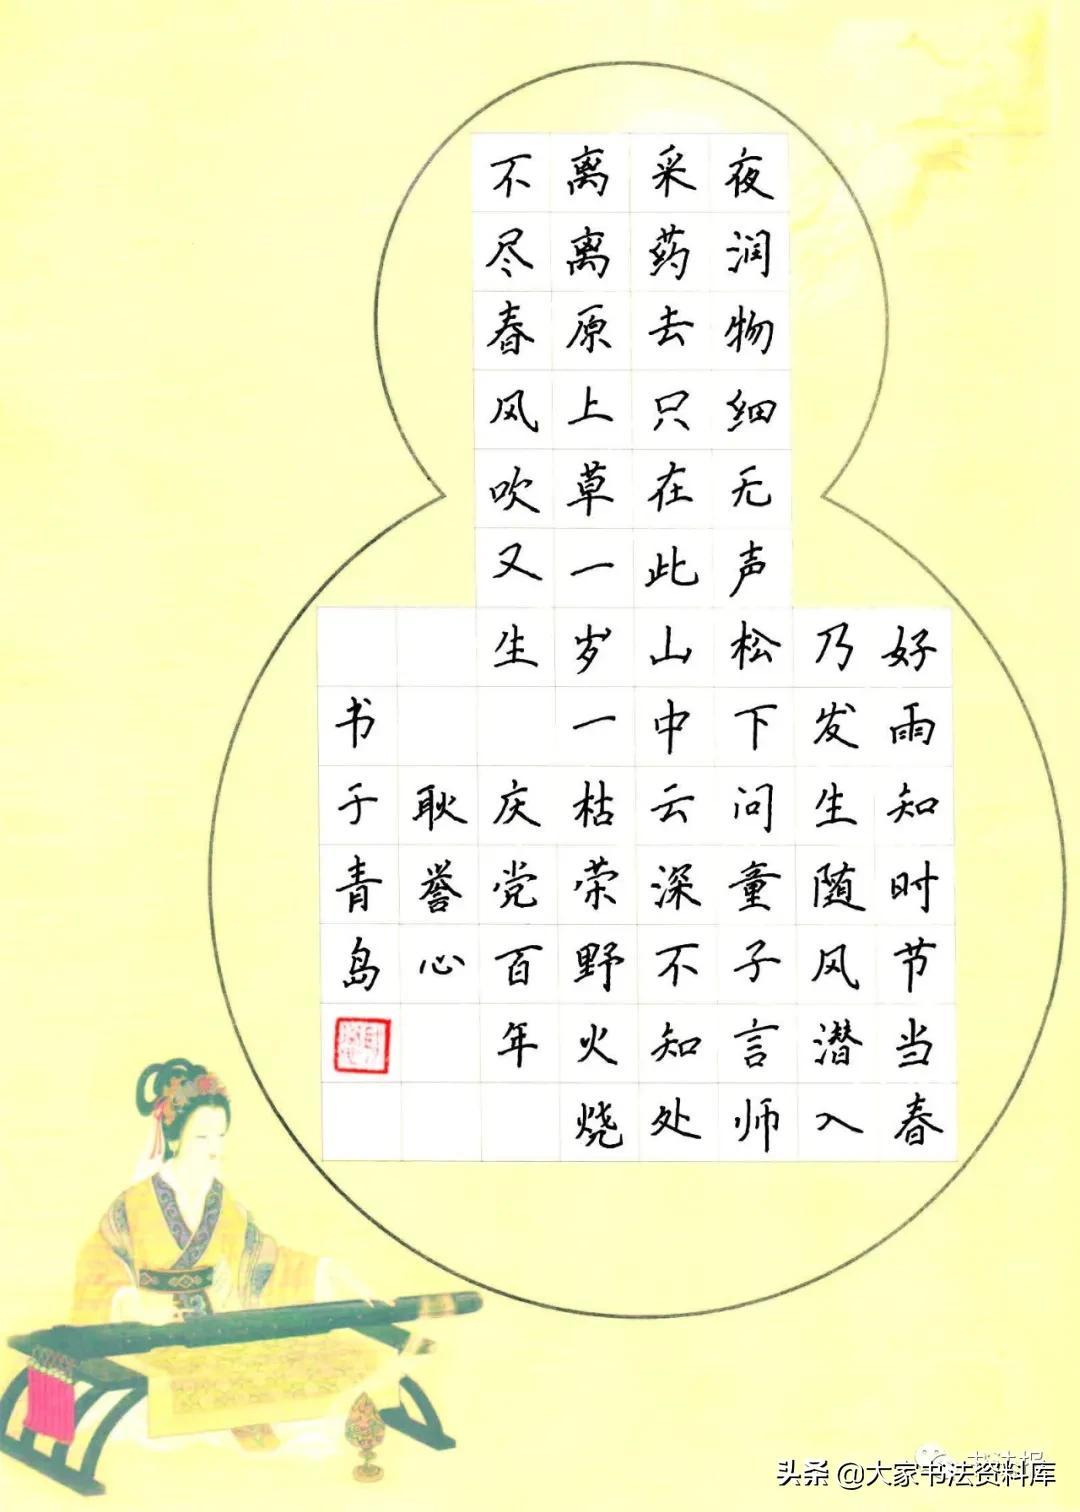 好雨知时节当春
乃发生随风潜入
夜润物细无声松下问童子言师
采药去只在此山中云深不知处
离离原上草一岁一枯荣野火烧
不尽春风吹又生 庆党百年
耿誉心
书于青岛
头条 @大家书法资料库
书法报